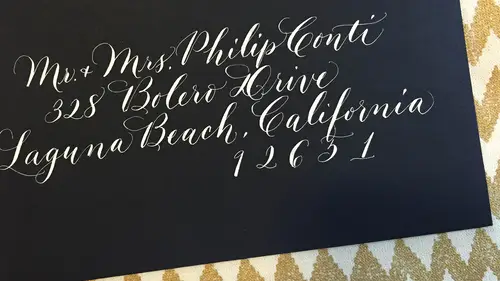 Mr. + Mrs. Philip Conti
328 Bolero Drive
Laguna Beach, California
92651